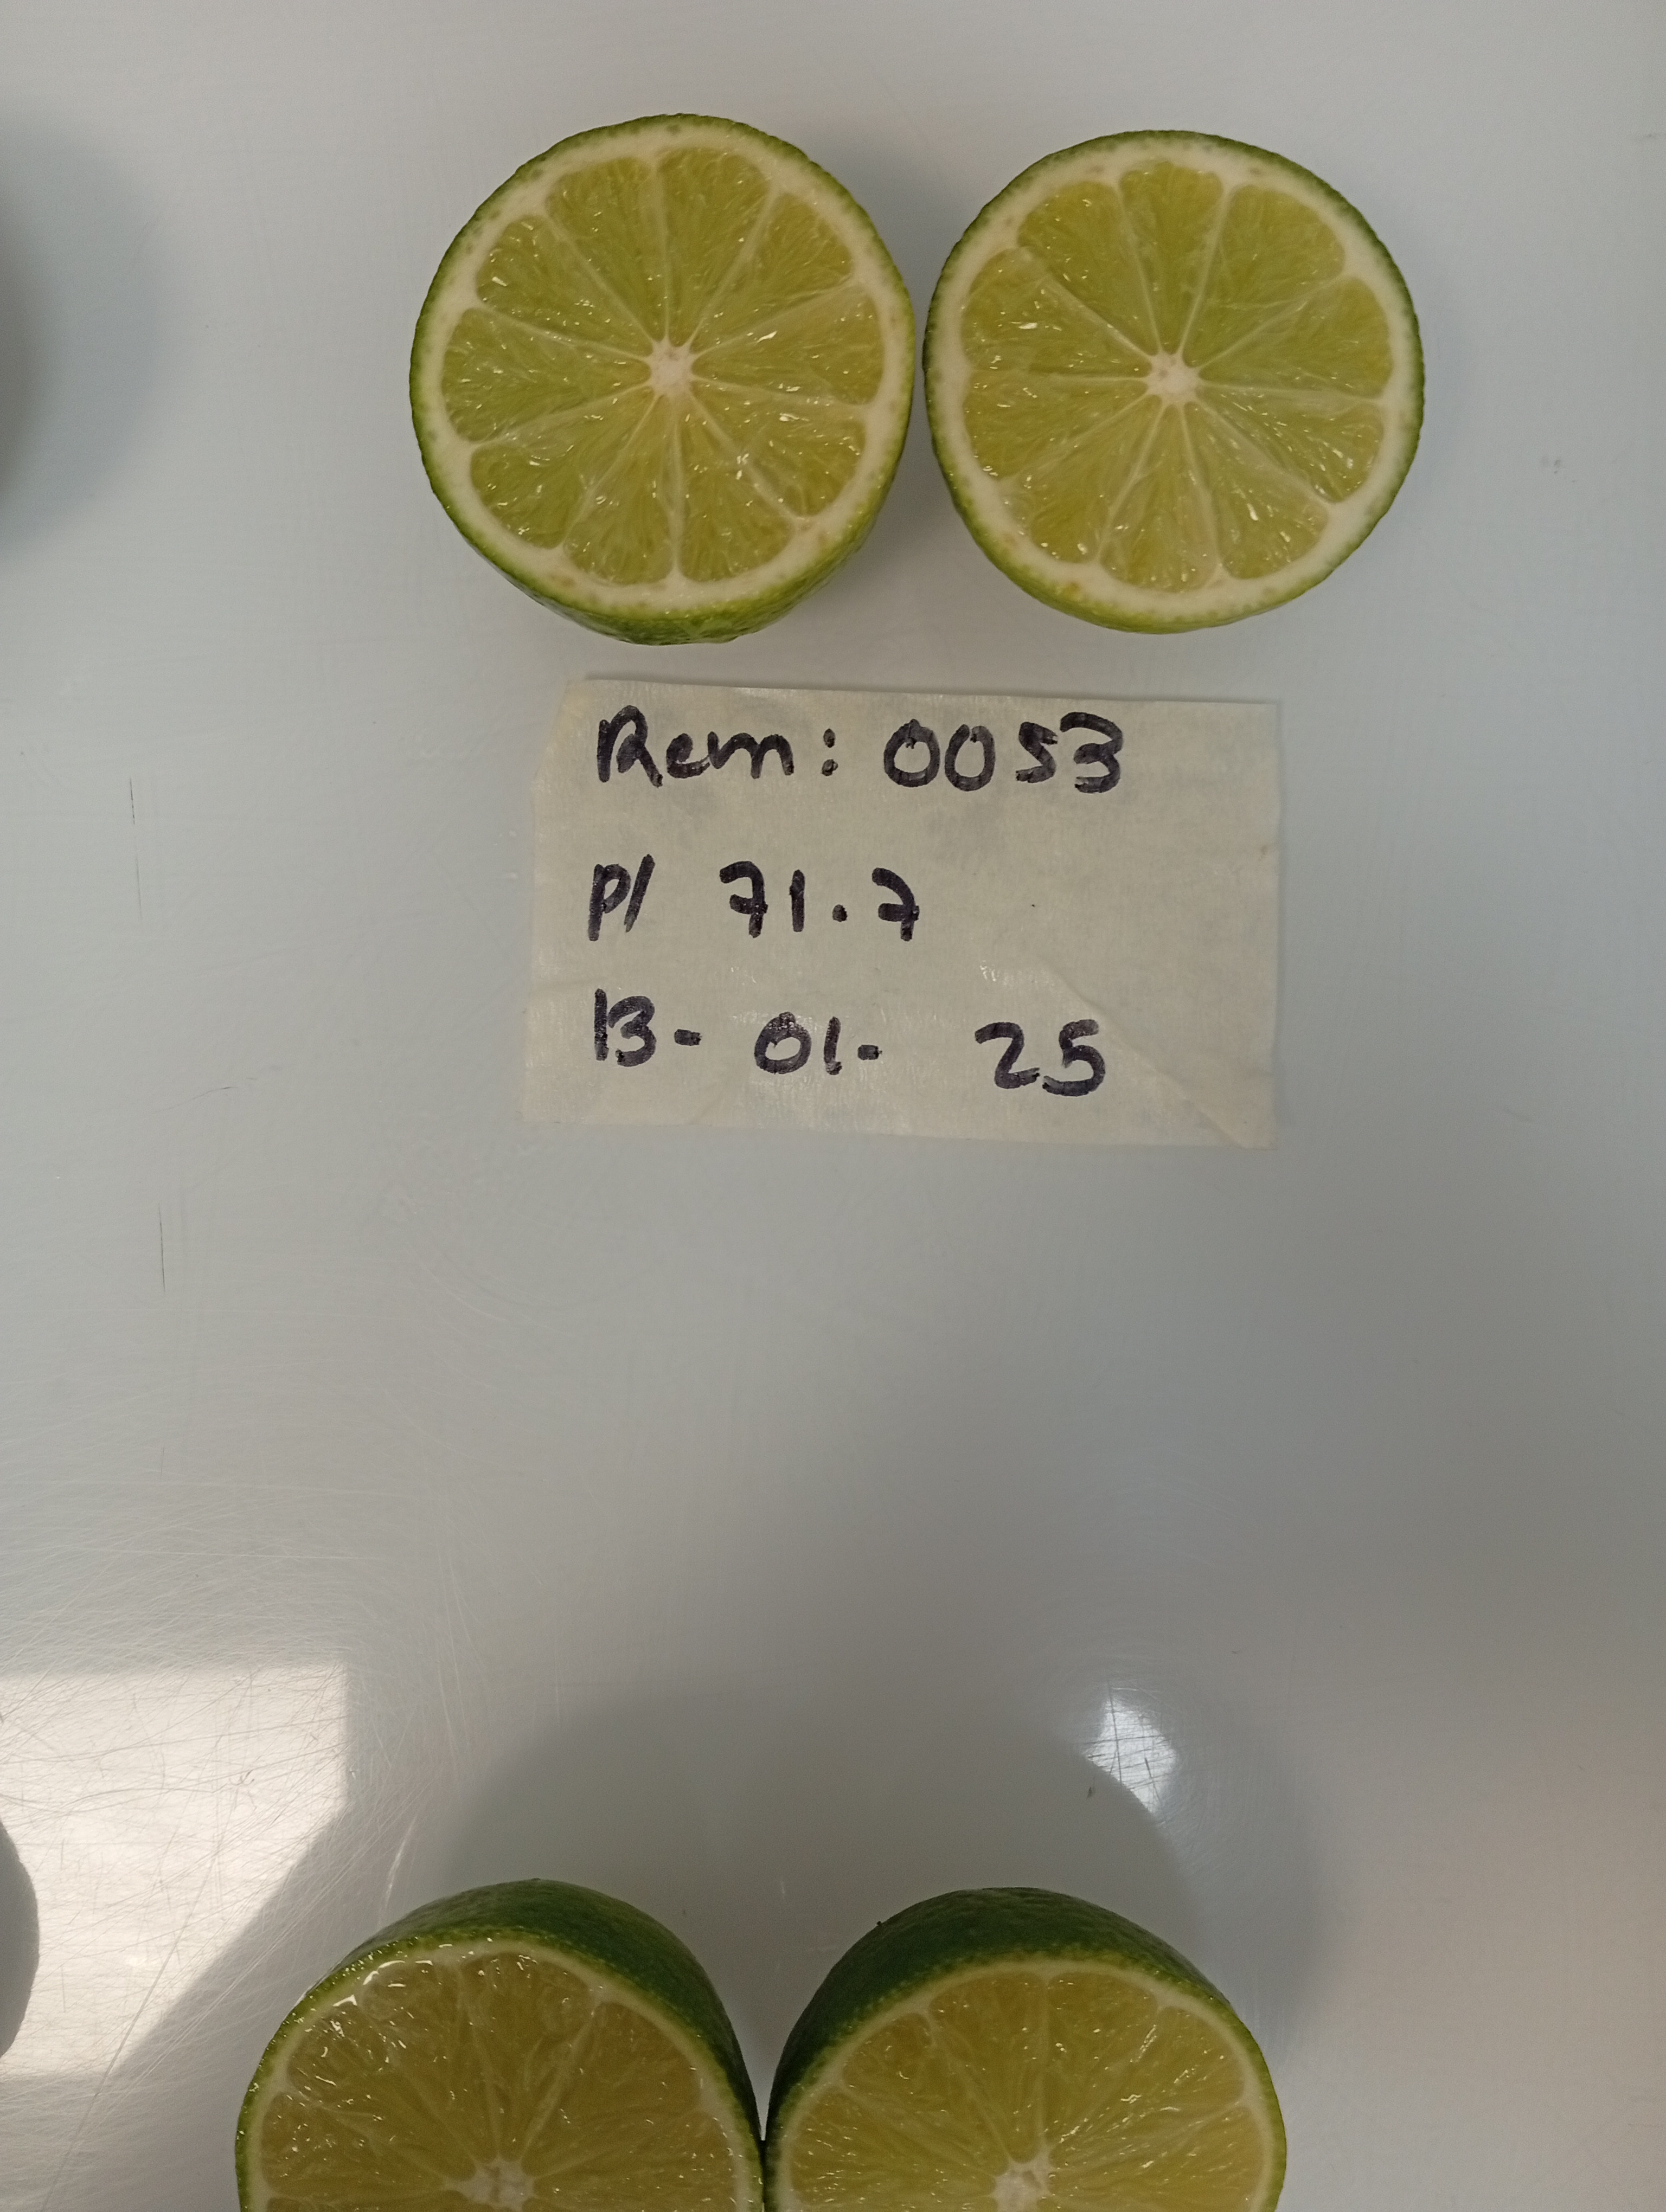 Rem: 0053
P/ 71.7
13- 01- 25